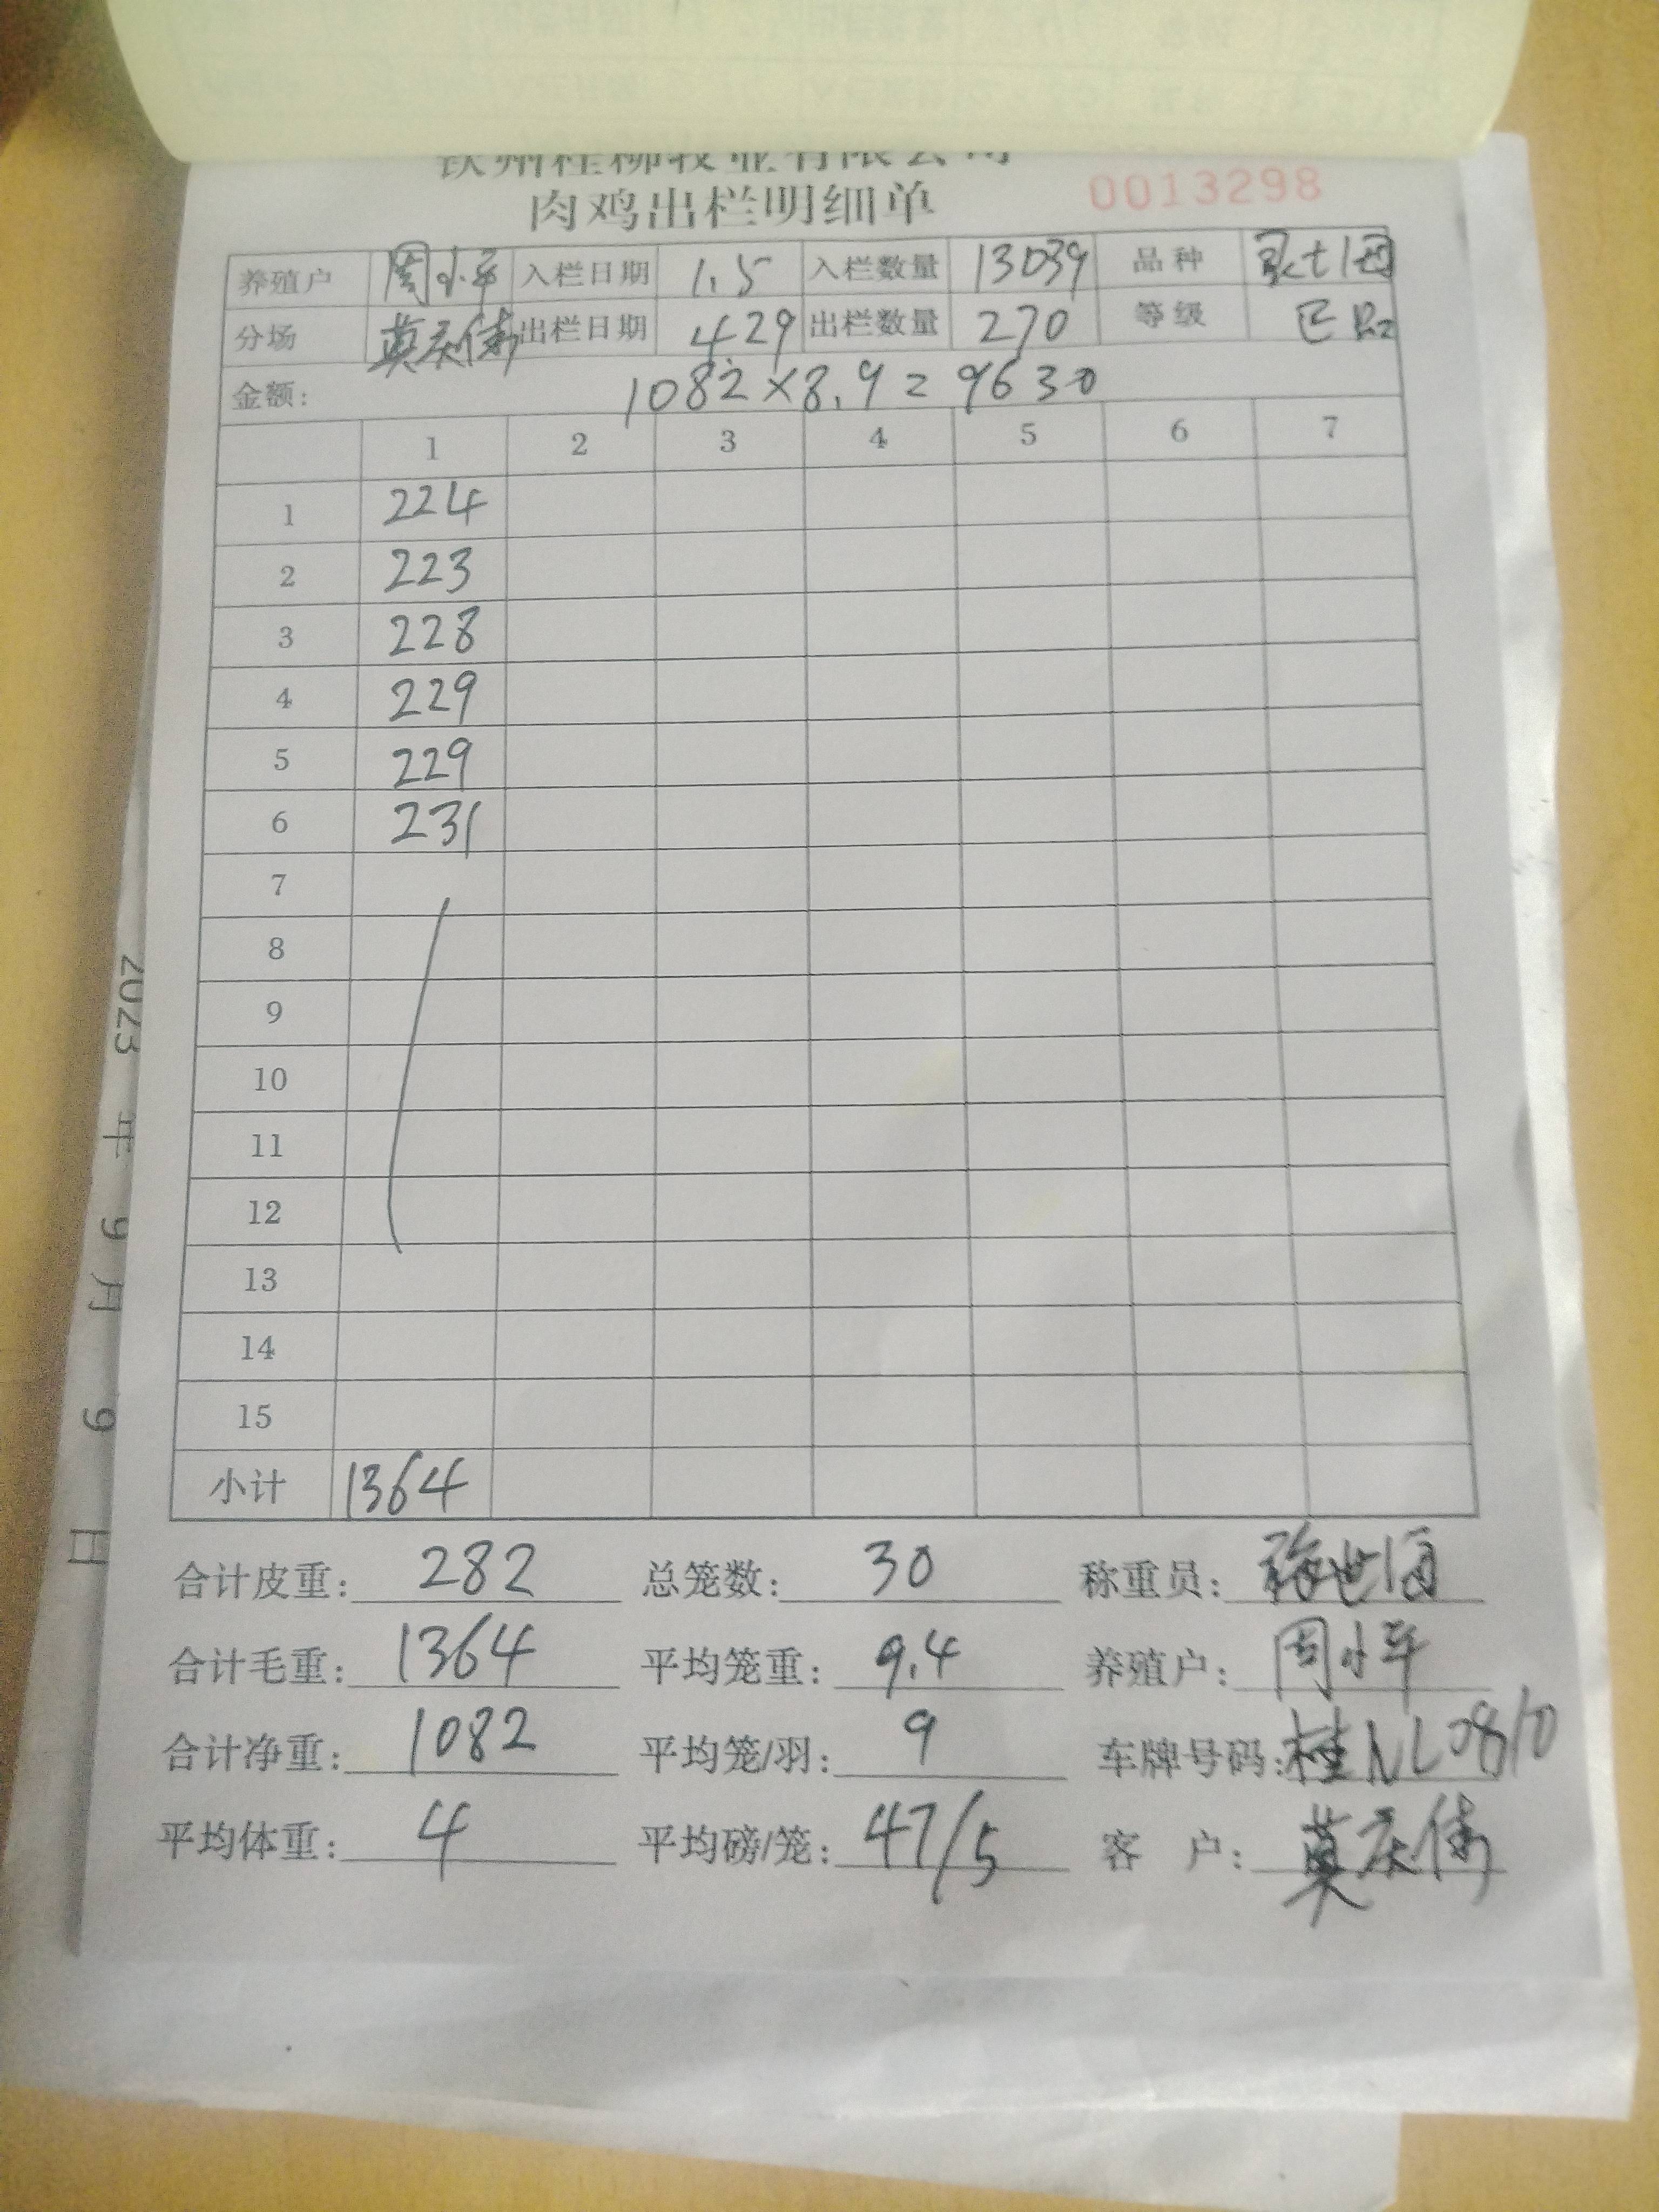 钦州桂柳牧业有限公司
肉鸡出栏明细单 0013298
养殖户 周小平 入栏日期 1.5 入栏数量 13039 品种
分场 莫庆伟 出栏日期 4.29 出栏数量 270 等级
金额: 1082×8.9=9630
1 2 3 4 5 6 7
1 224
2 223
3 228
4 229
5 229
6 231
7
8
9
10
11
12
13
14
15
小计 1364
合计皮重: 282 总笼数: 30 称重员:
合计毛重: 1364 平均笼重: 9.4 养殖户: 周小平
合计净重: 1082 平均笼/羽: 9 车牌号码: 桂NL0810
平均体重: 4 平均磅/笼: 47/5 客 户: 莫庆伟
2023 年 9 月 9 日